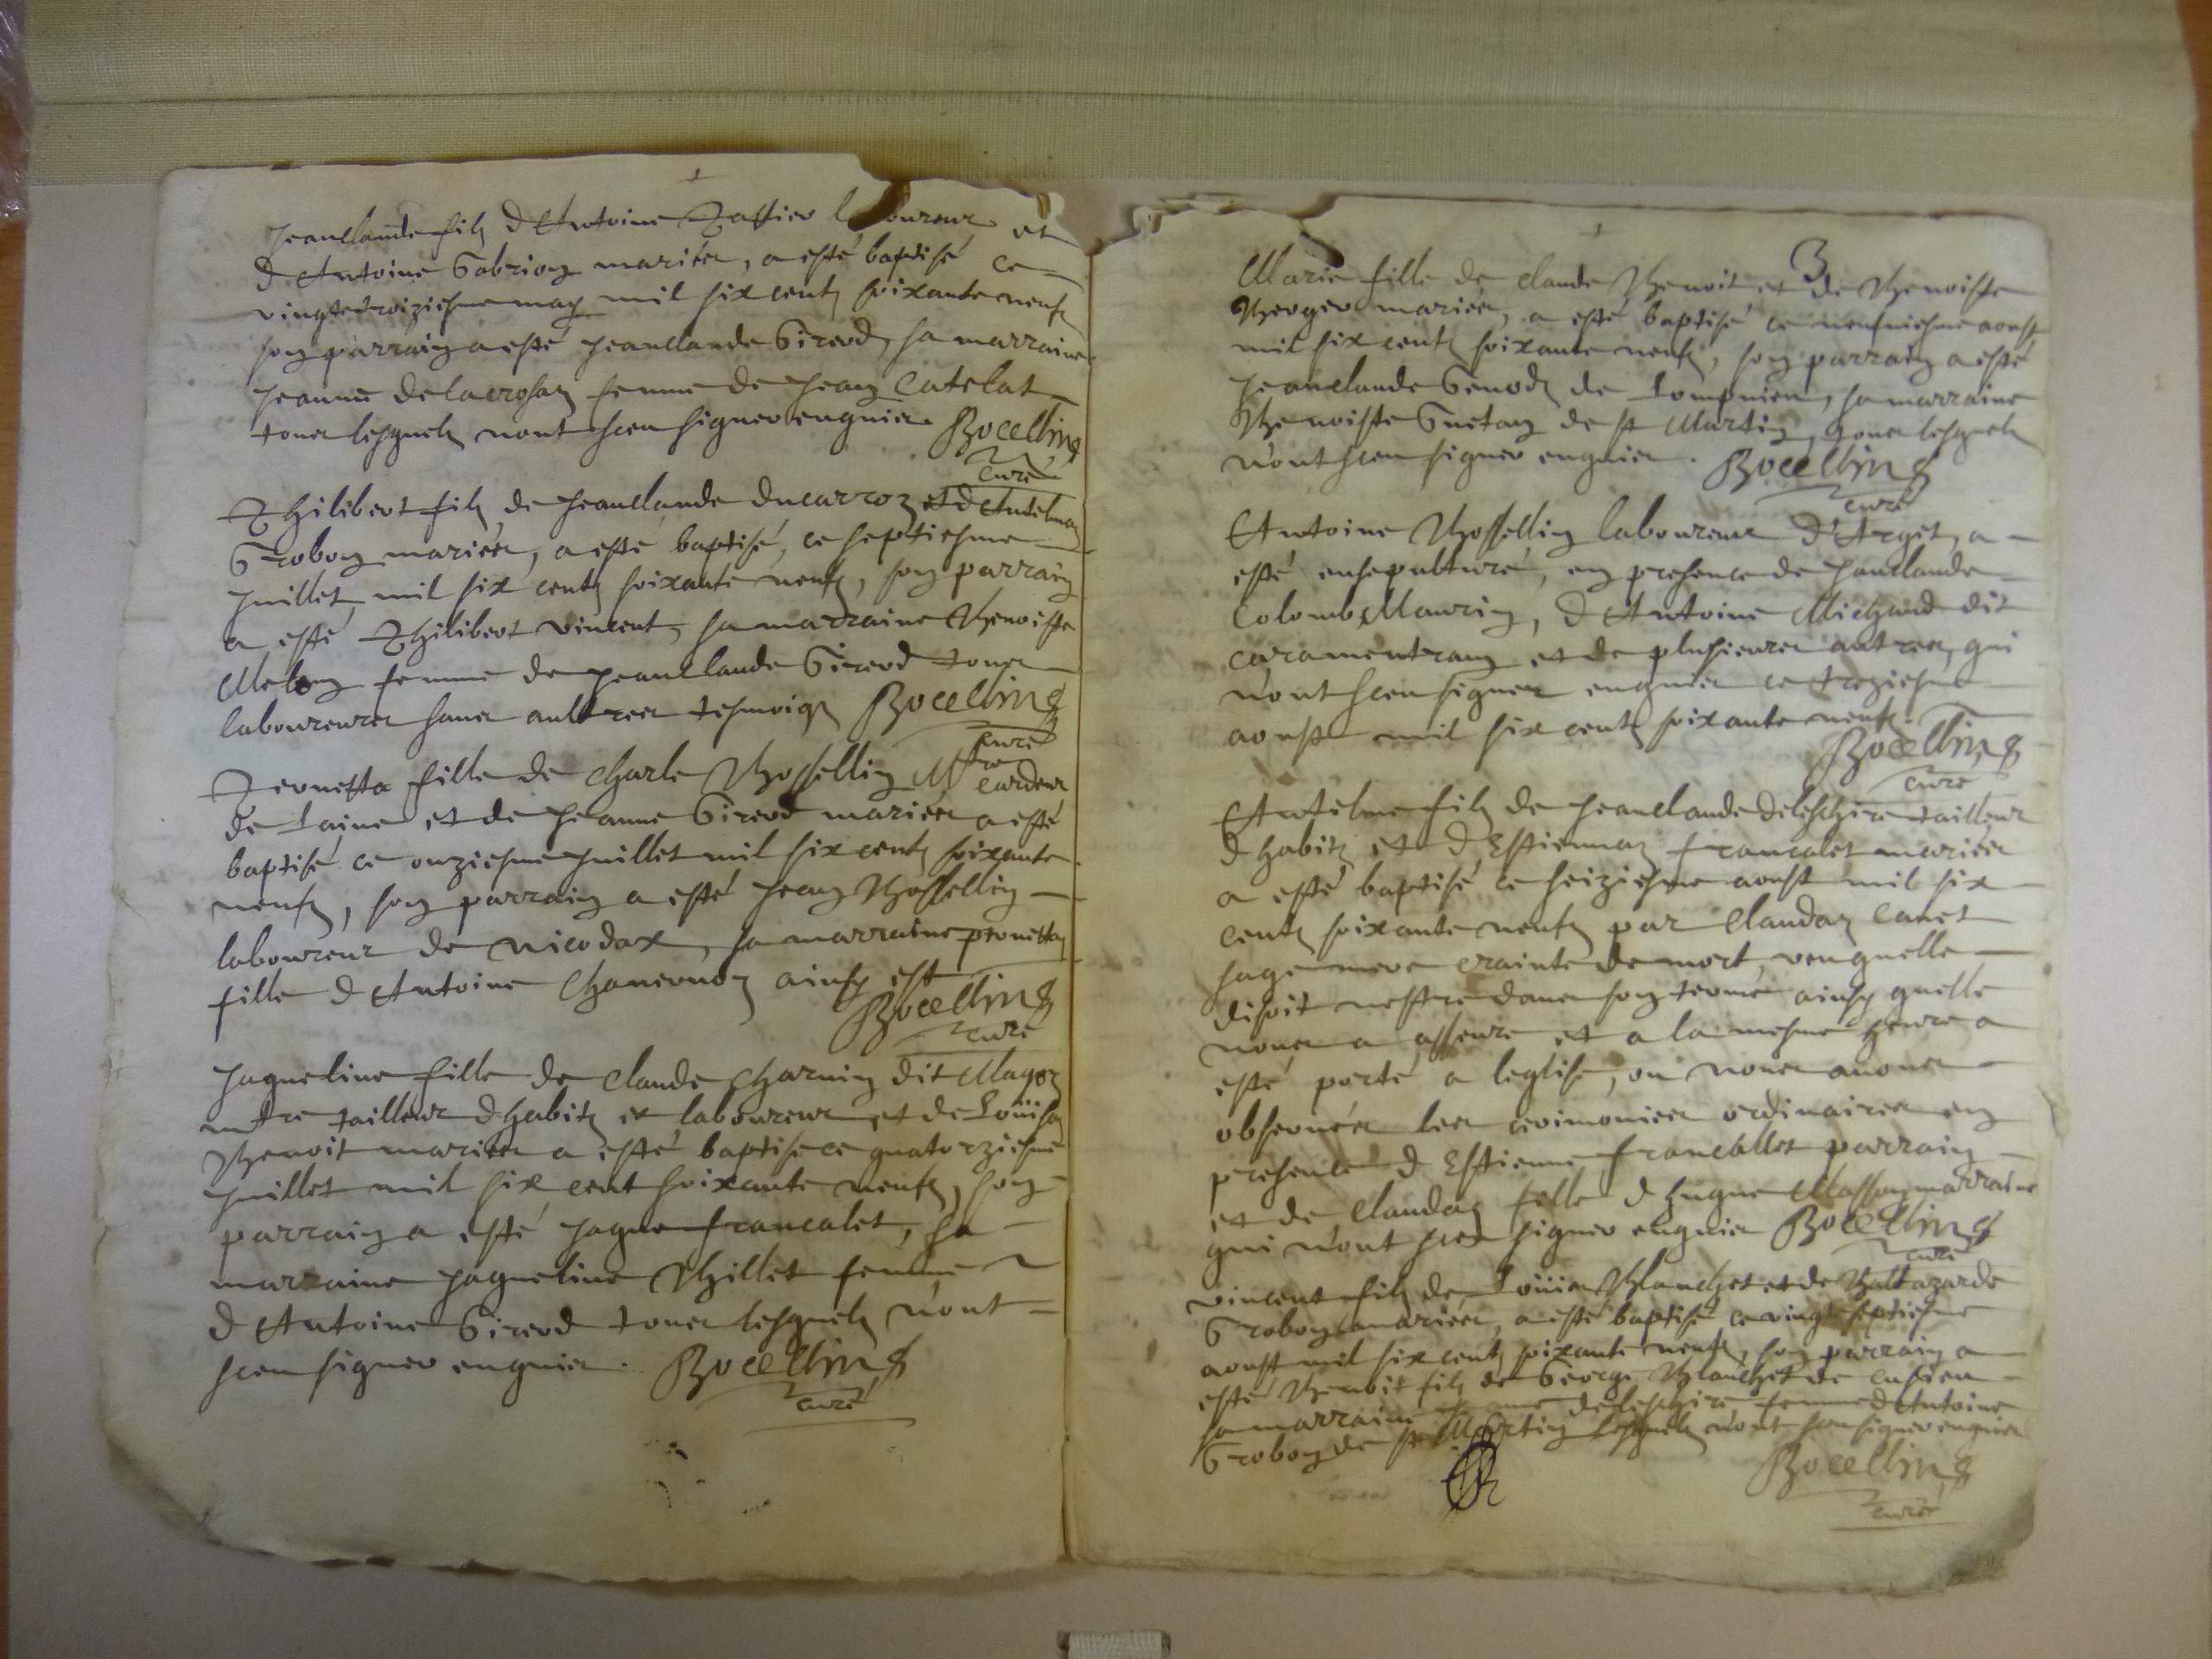 Jeanclaude filz d'Antoine Pattier l oureur et
d'Antoine Gabrion mariés, a esté baptisé ce
vingtetroiziesme may mil six centz soixante neufz
son parrain a esté Jeanclaude Girerd, sa marraine
Jeanne Delacrosaz femme de Jean Catelat
tous lesquelz nont sceu signer enquis. Bocellin
curé
Philibert filz de Jeanclaude Ducarroz et d'Antelmaz
Grobon mariés, a esté baptisé, ce septiesme
Juillet, mil six centz soixante neufz, son parrain
a esté Philibert Vincent, sa marraine Benoiste
femme de Jeanclaude Girerd tous
laboureurs sans aultres tesmoins Bocellin
curé
Pernetta fille de Charle Bossellin Mtre cardeur
de laine et de Jeanne Girerd mariés a esté
baptisé ce onziesme Juillet mil six centz soixante
neufz, son parrain a esté Jean Bossellin
laboureur de Nicodax, sa marraine pernettaz
fille d'Antoine ainsy est
Bocellin
curé
Jaqueline fille de Claude Charnin dit Magoz
mtre tailleur d'habitz et laboureur et de Loüisa
Benoit mariés a esté baptisé ce quatorziesme
Juillet mil six cent soixante neufz, son
parrain a esté Jaque Francalet, sa
marraine Jaqueline Billet femme
d'Antoine Girerd tous lesquelz n'ont
sceu signer enquis. Bocellin
curé
3
Marie fille de Claude Benoit et de Benoiste
Berger mariés, a esté baptisé ce neufviesme aoust
mil six centz soixante neufz, son parrain a esté
Jeanclaude Genodz de Lompnieu, sa marraine
Benoiste Guetan de St Martin, tous lesquelz
n'ont sceu signer enquis. Bocellin
curé
Antoine Bossellin laboureur d'Arget, a
esté ensepulturé, en presence de Janclaude
Colomb Maurin, d'Antoine Michaud dit
caramentran et de plusieurs autres, qui
n'ont sceu signer enquis ce treziesme
aoust mil six centz soixante neufz.
Bocellin
curé
Antelme filz de Jeanclaude Deleschire tailleur
d'habitz et d'Estiennaz Francalet mariés
a esté baptisé ce seiziesme aoust mil six
centz soixante neufz par Claudaz Canet
sage mere crainte de mort, veu quelle
disoit nestre dans son terme ainsy quelle
nous a asseure et a la mesme heure a
esté porté a leglise, ou nous auons
obserués les cerimonies ordinaires en
presence d'Estienne Francallet parrain
et de Claudaz fille d'hugue Masson marraine
qui n'ont sceu signer enquis Bocellin
curé
Vincent filz de Loüis Blanchet et de Baltazarde
Grobon mariés, a esté baptisé ce vingtseptiesme
aoust mil six centz soixante neufz, son parrain a
esté Benoit filz de George Blanchet de
sa marraine Deleschire femme d'Antoine
Grobon de St Martin lesquelz n'ont sceu signer enquis
Bocellin
curé